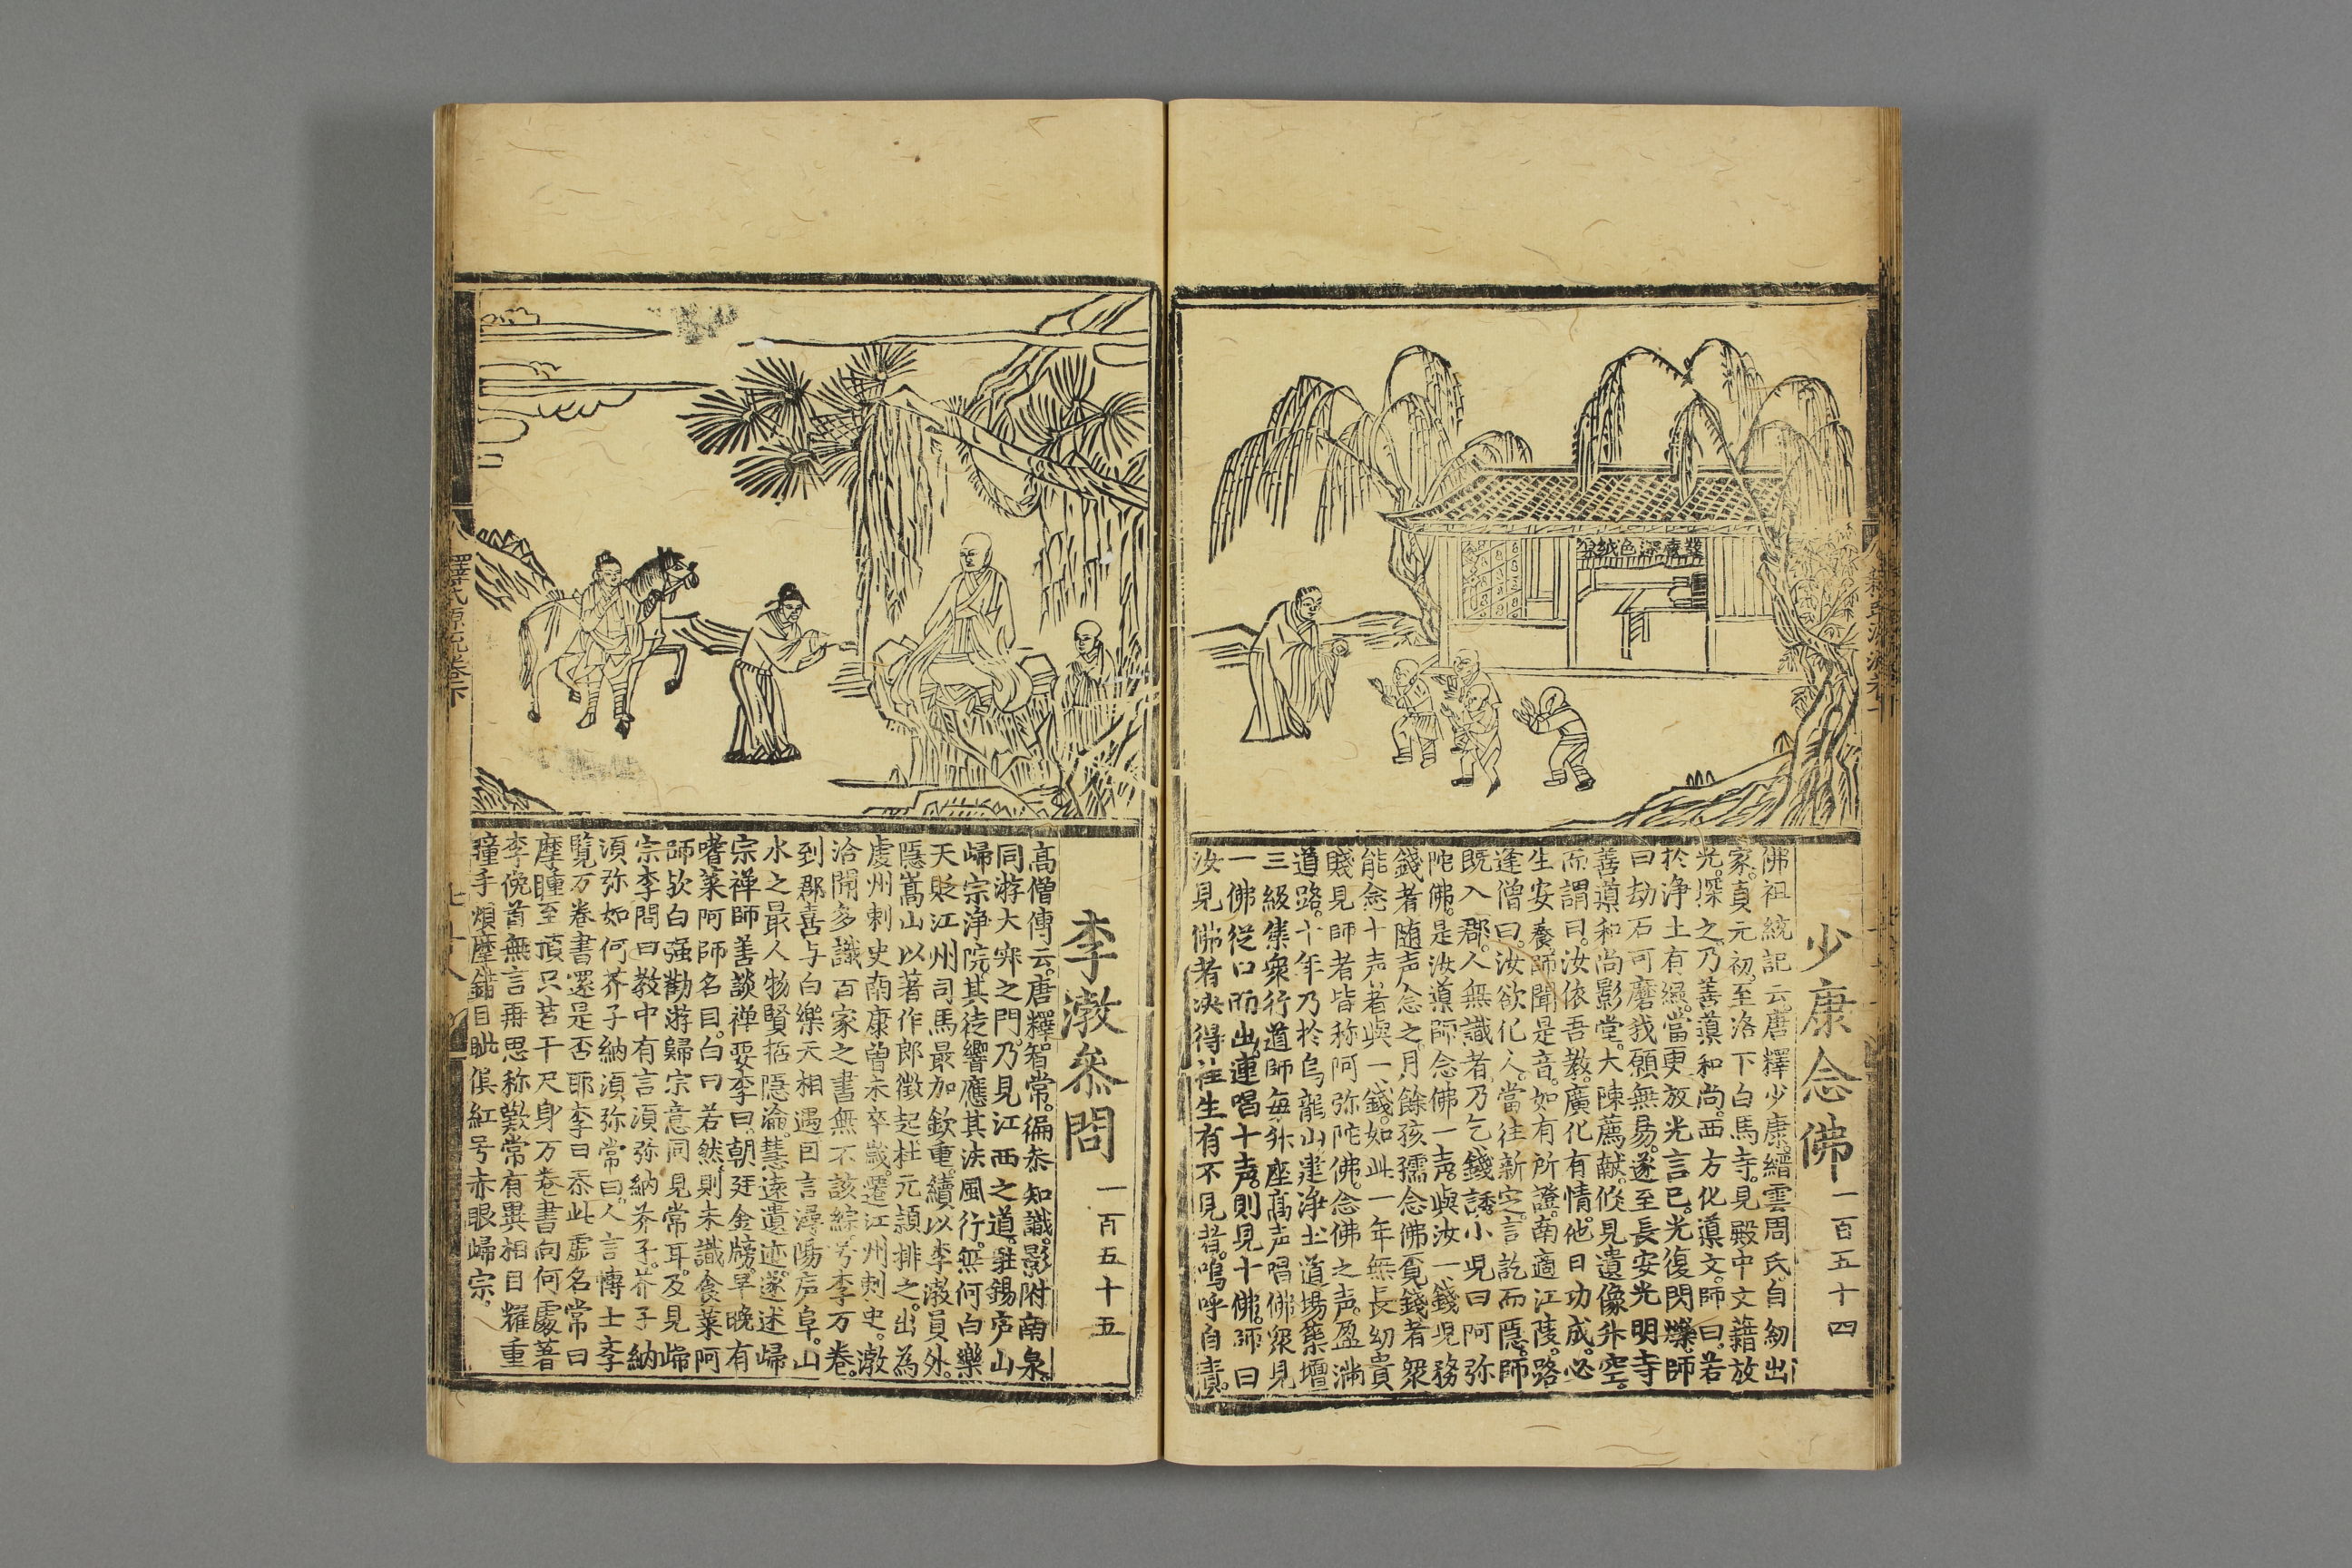 少康念佛
一百五十四
佛祖統記云。唐釋少康。縉雲周氏。自㓜出
家。貞元初。至洛下白馬寺。見殿中文藉放
光。探之。乃善導和尚。西方化導文。師曰。若
於淨土有緣。當更放光言已。光復閃爍。師
曰劫石可磨我願無易。遂至長安光明寺
善導和尚影堂。大陳薦献。倐見遺像升空。
而謂曰。汝依吾教。廣化有情。他日功成。必
生安養。師聞是音。如有所證。南適江陵。路
逢僧曰。汝欲化人。當往新定。言訖而隱。師
既入郡。人無識者。乃乞錢誘小児曰阿弥
陀佛。是汝導師念佛一声。與汝一錢児務
錢者随声念之。月餘孩孺念佛覔錢者衆
能念十声者與一錢。如此一年無長幼貴
賤見師者皆称阿弥陀佛。念佛之声。盈滿
道路。十年乃於烏龍山建淨土道場築壇
三級集衆行道師每升座髙声唱佛衆見
一佛從口而出。連唱十声。則見十佛。師曰
汝見佛者決得徃生有不見者。嗚呼自責。
李激叅問
一百五十五
高僧傳云。唐釋智常。徧叅知識。影附南泉。
同游大寂之門。乃見江西之道。駐錫庐山
歸宗淨院。其徒響應其法風行。無何白樂
天貶江州司馬最加欽重。續以李激員外。
隱嵩山以著作郎徵起杜元潁排之。出為
虔州刺史南康曽未卒歲。遷江州刺史。激
洽聞多識百家之書無不該綜。号李万卷。
到郡喜与白樂天相遇因言潯陽庐阜。山
水之最人物賢拓隱淪。慧遠遺迹。遂述歸
宗禅師善談禅要李曰。朝廷金牓。早晚有
嗜菜阿師名目。白曰若然則未識食菜阿
師欤白强勸游歸宗意同見常耳。及見歸
宗李問曰教中有言湏弥納芥子。芥子納
湏弥如何芥子納湏弥常曰。人言愽士李
覽万卷書還是否耶李曰忝此虛名常曰
摩踵至頂只若干尺身万卷書向何處著
李俛首無言再思称歎常有異相目耀重
瞳手煩摩錯目眦俱紅号赤眼歸宗。